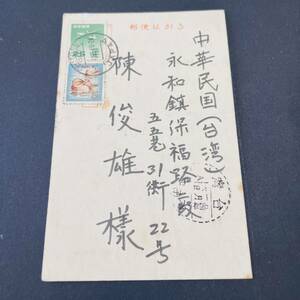 郵便はがき
中華民国(台湾)
永和鎮保福路二段
五五巷31衖22号
陳俊雄様